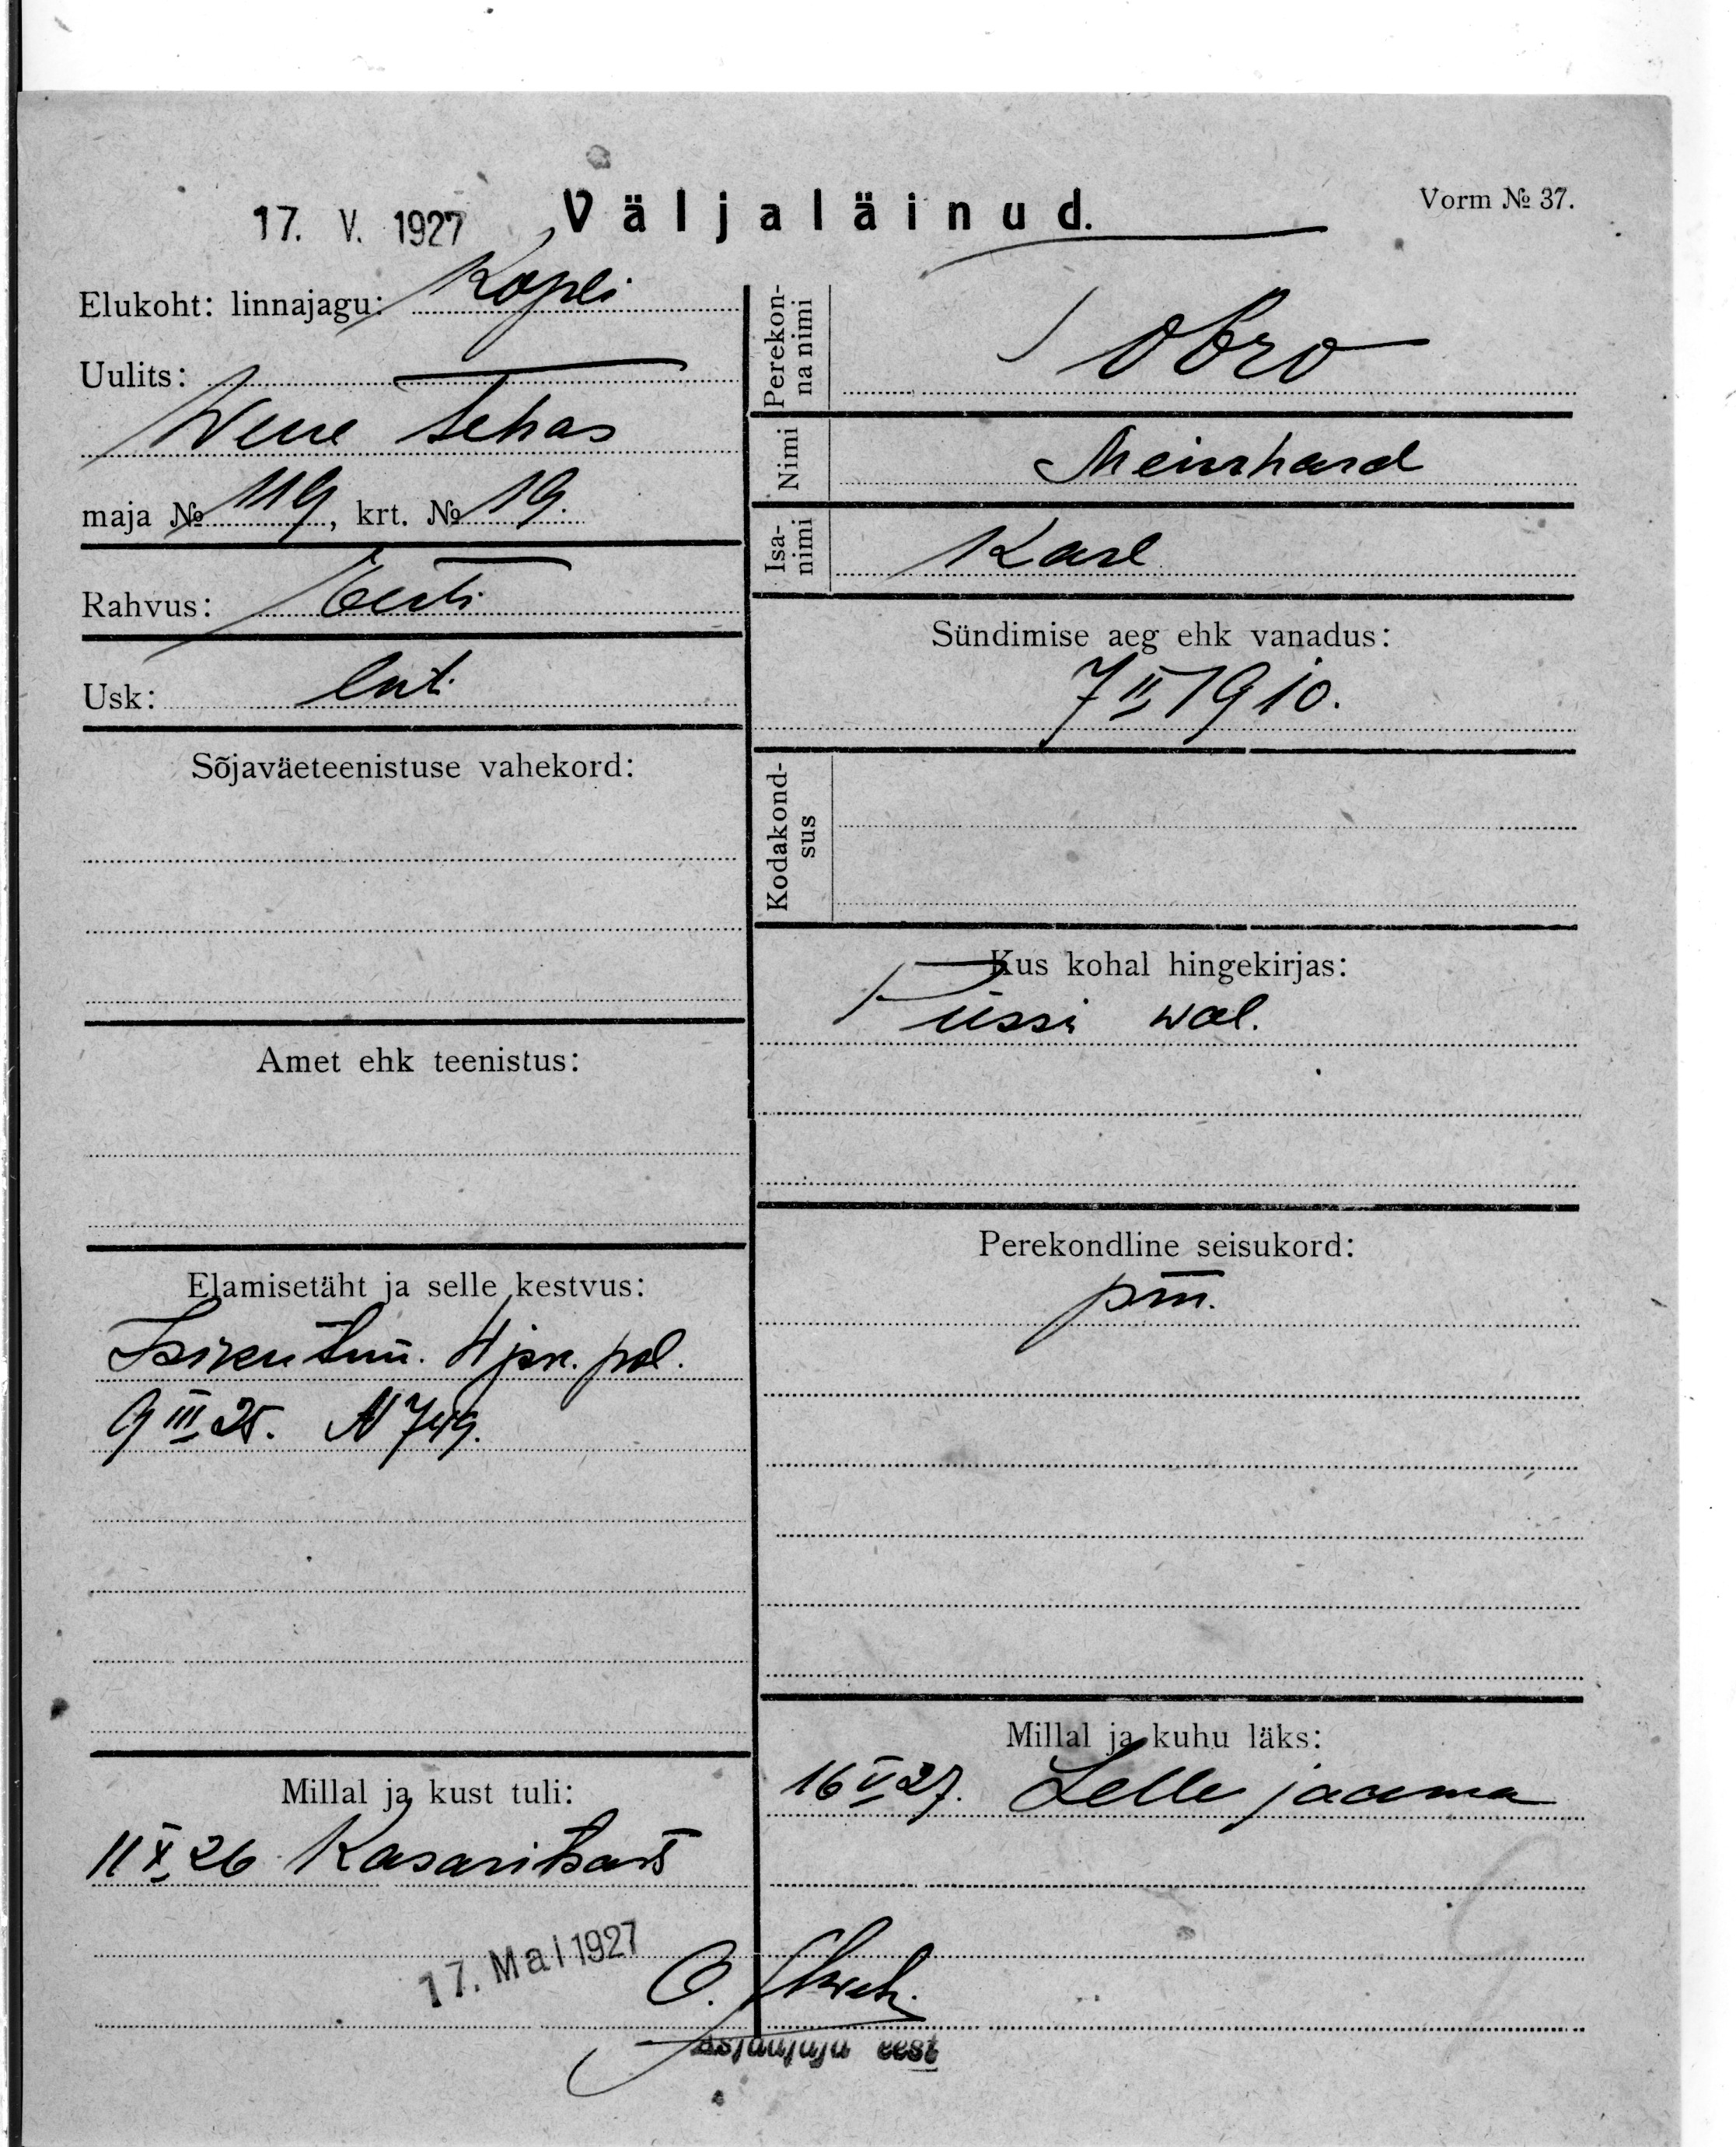 17. V. 1927
Väljaläinud.
Vorm № 37.
Elukoht: linnajagu: Kopli
Uulits:
Wene tehas
maja № 119, krt. № 19.
Rahvus: Eesti
Usk: lut.
Sõjaväeteenistuse vahekord:
Amet ehk teenistus:
Elamisetäht ja selle kestvus:
Isiku tun. 4 jsk. pol.
9 III 25. N 749.
Millal ja kust tuli:
11 X 26 Kasaritsast
17. Mai 1927
Perekonna nimi
Tobro
Nimi
Meinhard
Isanimi
Karl
Sündimise aeg ehk vanadus:
7 II 1910.
Kodakondsus
Kus kohal hingekirjas:
Püssi wal.
Perekondline seisukord:
pm.
Millal ja kuhu läks:
16 V 27. Lelle jaama
O.
asjaajaja eest